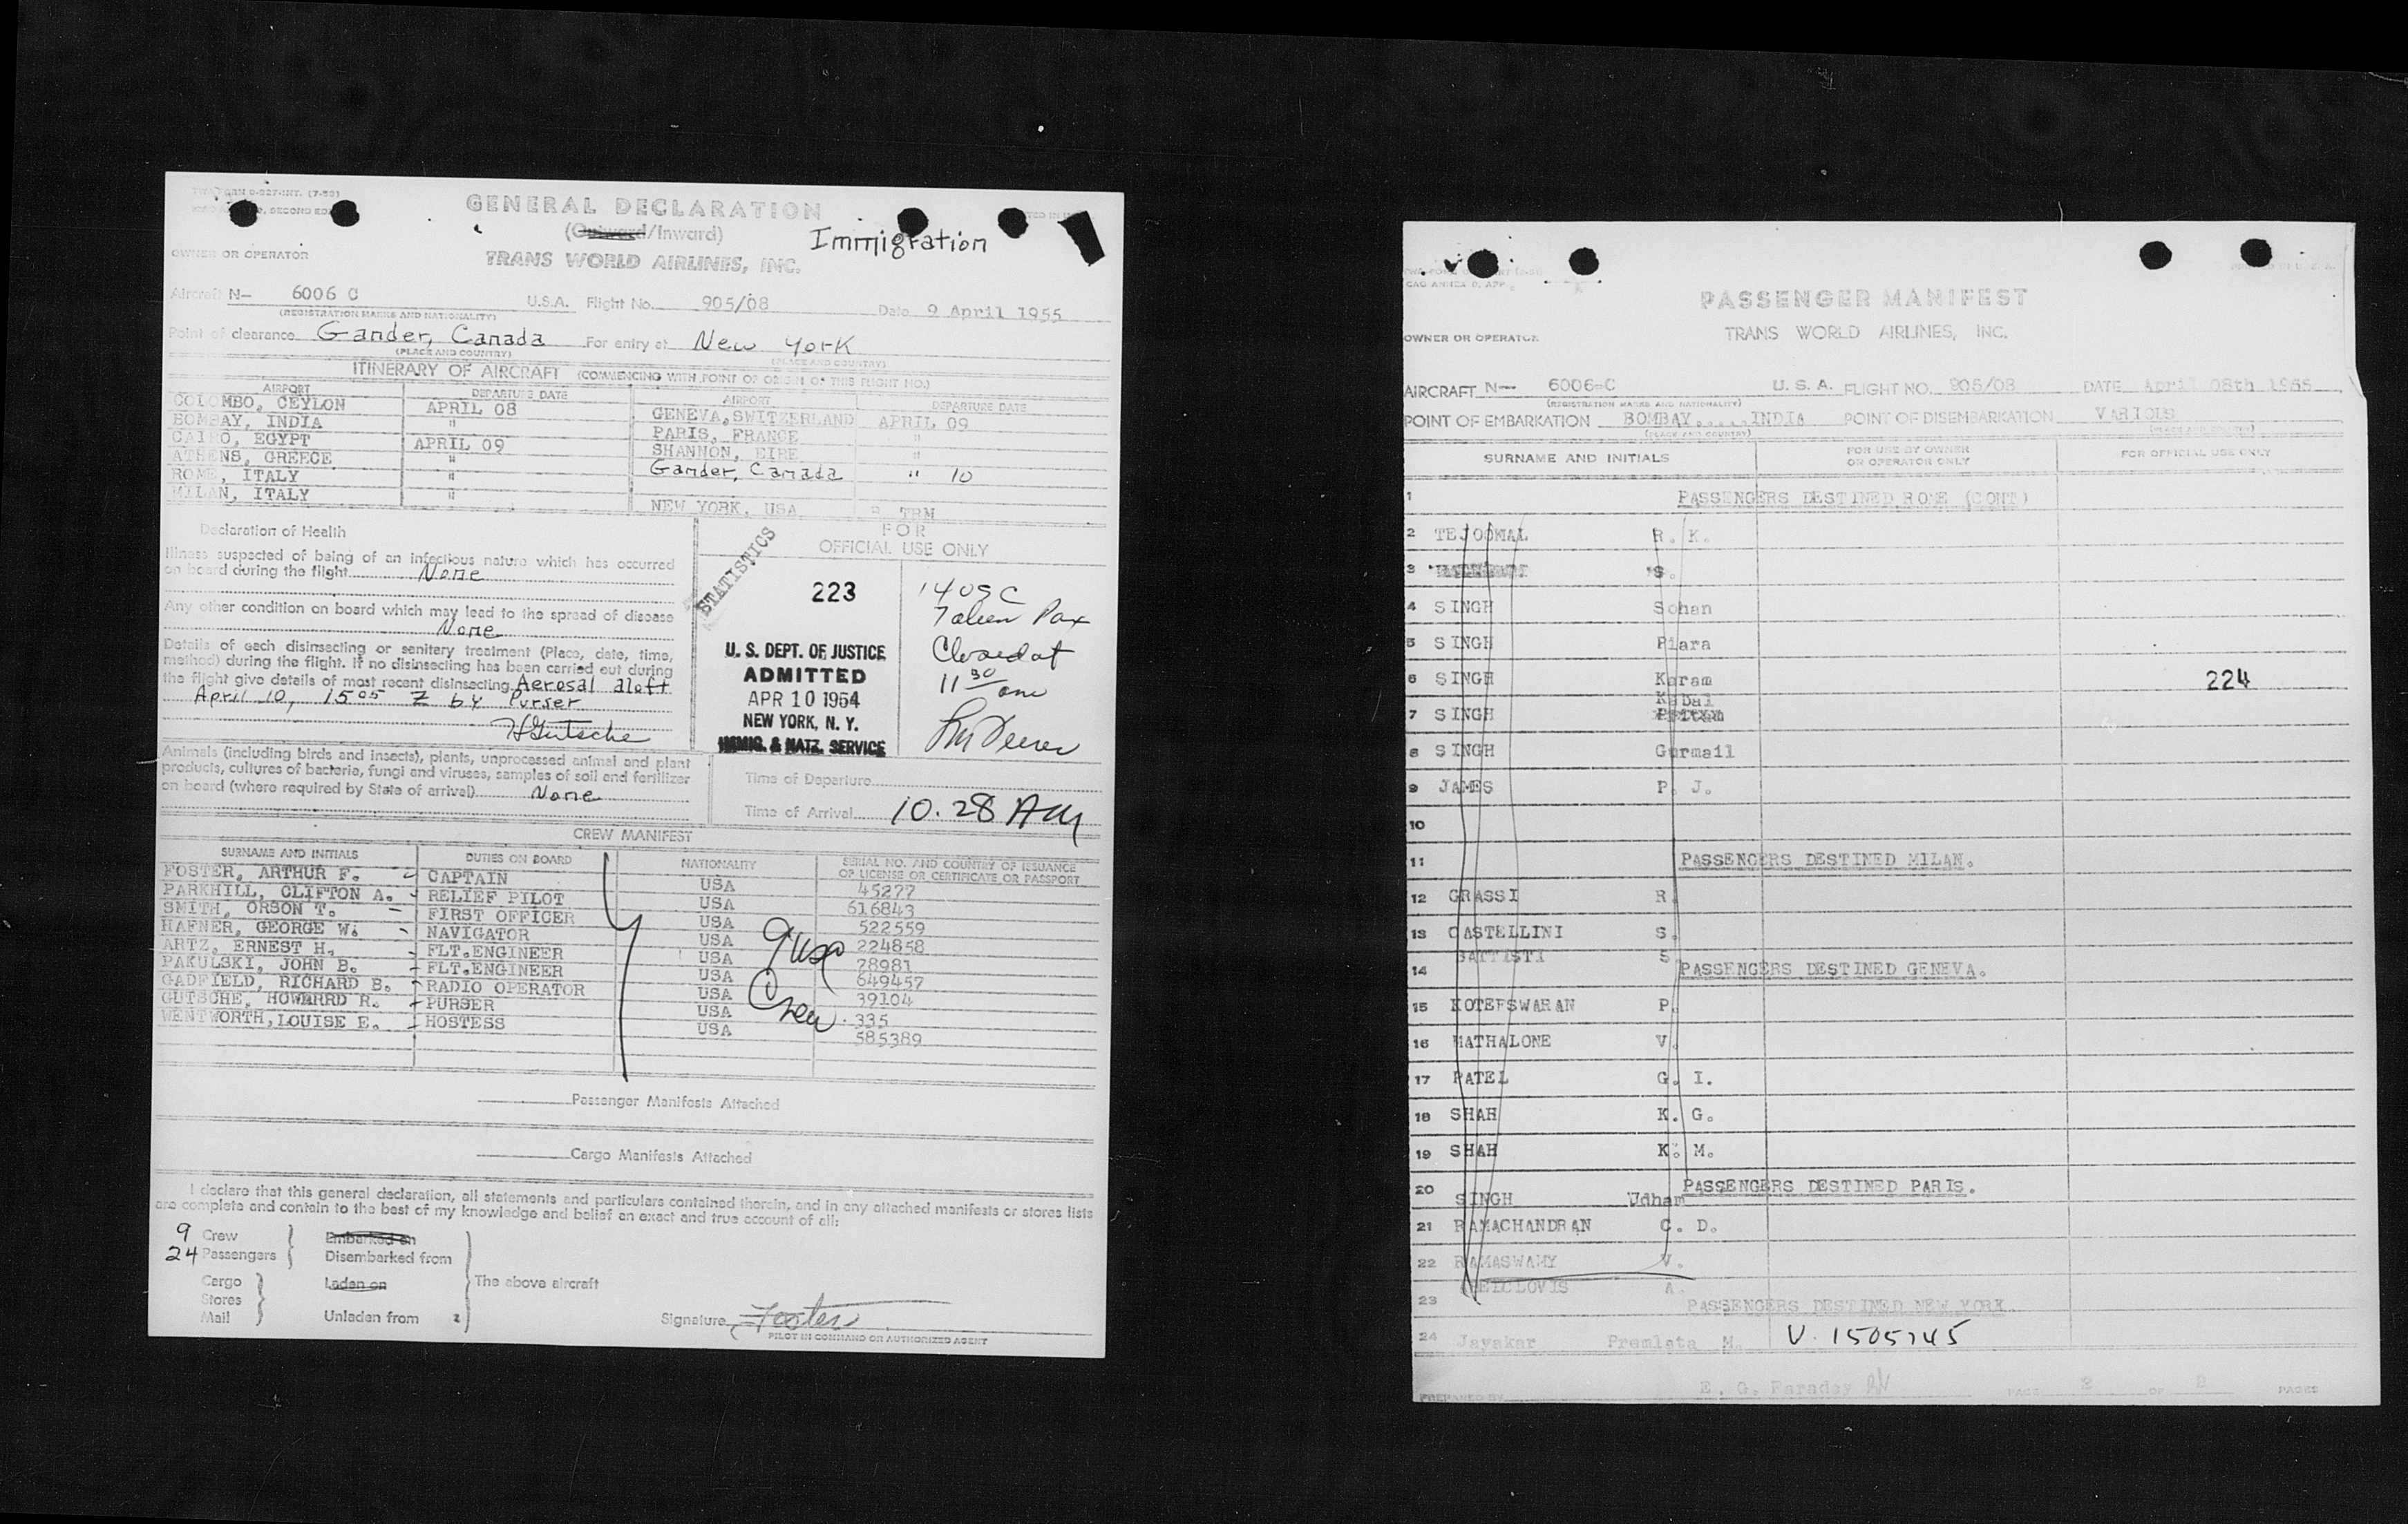 GENERAL DECLARATION
(Outward/Inward)
Immigration
OWNER OR OPERATOR
TRANS WORLD AIRLINES, INC.
Aircraft N- 6006 C U.S.A. Flight No. 905/08 Date 9 April 1955
(REGISTRATION MARKS AND NATIONALITY)
Point of clearance Gander, Canada For entry at New York
(PLACE AND COUNTRY) (PLACE AND COUNTRY)
ITINERARY OF AIRCRAFT (COMMENCING WITH POINT OF ORIGIN OF THIS FLIGHT NO.)
AIRPORT DEPARTURE DATE AIRPORT DEPARTURE DATE
COLOMBO, CEYLON APRIL 08 GENEVA, SWITZERLAND APRIL 09
BOMBAY, INDIA " PARIS, FRANCE "
CAIRO, EGYPT APRIL 09 SHANNON, EIRE "
ATHENS, GREECE " Gander, Canada " 10
ROME, ITALY "
MILAN, ITALY " NEW YORK, USA
Declaration of Health
Illness suspected of being of an infectious nature which has occurred
on board during the flight None
Any other condition on board which may lead to the spread of disease
None
Details of each disinsecting or sanitary treatment (Place, date, time,
method) during the flight. If no disinsecting has been carried out during
the flight give details of most recent disinsecting. Aerosal aloft
April 10, 1505 Z by Purser
HGutsche
FOR
OFFICIAL USE ONLY
STATISTICS
223
U. S. DEPT. OF JUSTICE
ADMITTED
APR 10 1954
NEW YORK, N. Y.
IMMIG. & NATZ. SERVICE
14 USC
7 alien Pax
Closed at
11 30 am
Animals (including birds and insects), plants, unprocessed animal and plant
products, cultures of bacteria, fungi and viruses, samples of soil and fertilizer
on board (where required by State of arrival) None
Time of Departure
Time of Arrival 10.28 AM
CREW MANIFEST
SURNAME AND INITIALS DUTIES ON BOARD NATIONALITY SERIAL NO. AND COUNTRY OF ISSUANCE
OF LICENSE OR CERTIFICATE OR PASSPORT
FOSTER, ARTHUR F. CAPTAIN USA 45277
PARKHILL, CLIFTON A. RELIEF PILOT USA 616843
SMITH, ORSON T. FIRST OFFICER USA 522559
HAFNER, GEORGE W. NAVIGATOR USA 224858
ARTZ, ERNEST H. FLT.ENGINEER USA 28981
PAKULSKI, JOHN B. FLT.ENGINEER USA 649457
GADFIELD, RICHARD B. RADIO OPERATOR USA 39104
GUTSCHE, HOWARRD R. PURSER USA 335
WENTWORTH, LOUISE E. HOSTESS USA 585389
9 USC
Crew
Passenger Manifests Attached
Cargo Manifests Attached
I declare that this general declaration, all statements and particulars contained therein, and in any attached manifests or stores lists
are complete and contain to the best of my knowledge and belief an exact and true account of all:
9 Crew Embarked on
24 Passengers Disembarked from
Cargo Laden on The above aircraft
Stores
Mail Unladen from
Signature Foster
PILOT IN COMMAND OR AUTHORIZED AGENT
PASSENGER MANIFEST
OWNER OR OPERATOR TRANS WORLD AIRLINES, INC.
AIRCRAFT N- 6006-C U. S. A. FLIGHT NO. 905/08 DATE April 08th 1955
(REGISTRATION MARKS AND NATIONALITY)
POINT OF EMBARKATION BOMBAY......INDIA POINT OF DISEMBARKATION VARIOUS
(PLACE AND COUNTRY) (PLACE AND COUNTRY)
SURNAME AND INITIALS FOR USE BY OWNER
OR OPERATOR ONLY FOR OFFICIAL USE ONLY
1 PASSENGERS DESTINED ROME (CONT)
2 TEJOOMAL R. K.
3 S.
4 SINGH Sohan
5 SINGH Piara
6 SINGH Karam 224
7 SINGH Kabal
8 SINGH Gurmail
9 JAMES P. J.
10
11 PASSENGERS DESTINED MILAN.
12 GRASSI R.
13 CASTELLINI S.
BATTISTI S.
14 PASSENGERS DESTINED GENEVA.
15 KOTEESWARAN P.
16 MATHALONE V.
17 PATEL G. I.
18 SHAH K. G.
19 SHAH K. M.
20 PASSENGERS DESTINED PARIS.
SINGH Udham
21 RAMACHANDRAN C. D.
22 RAMASWAMY V.
23 A.
PASSENGERS DESTINED NEW YORK
24 Jayakar Premlata M. V. 1505745
PREPARED BY E. G. Faraday PAGE 2 OF 2 PAGES